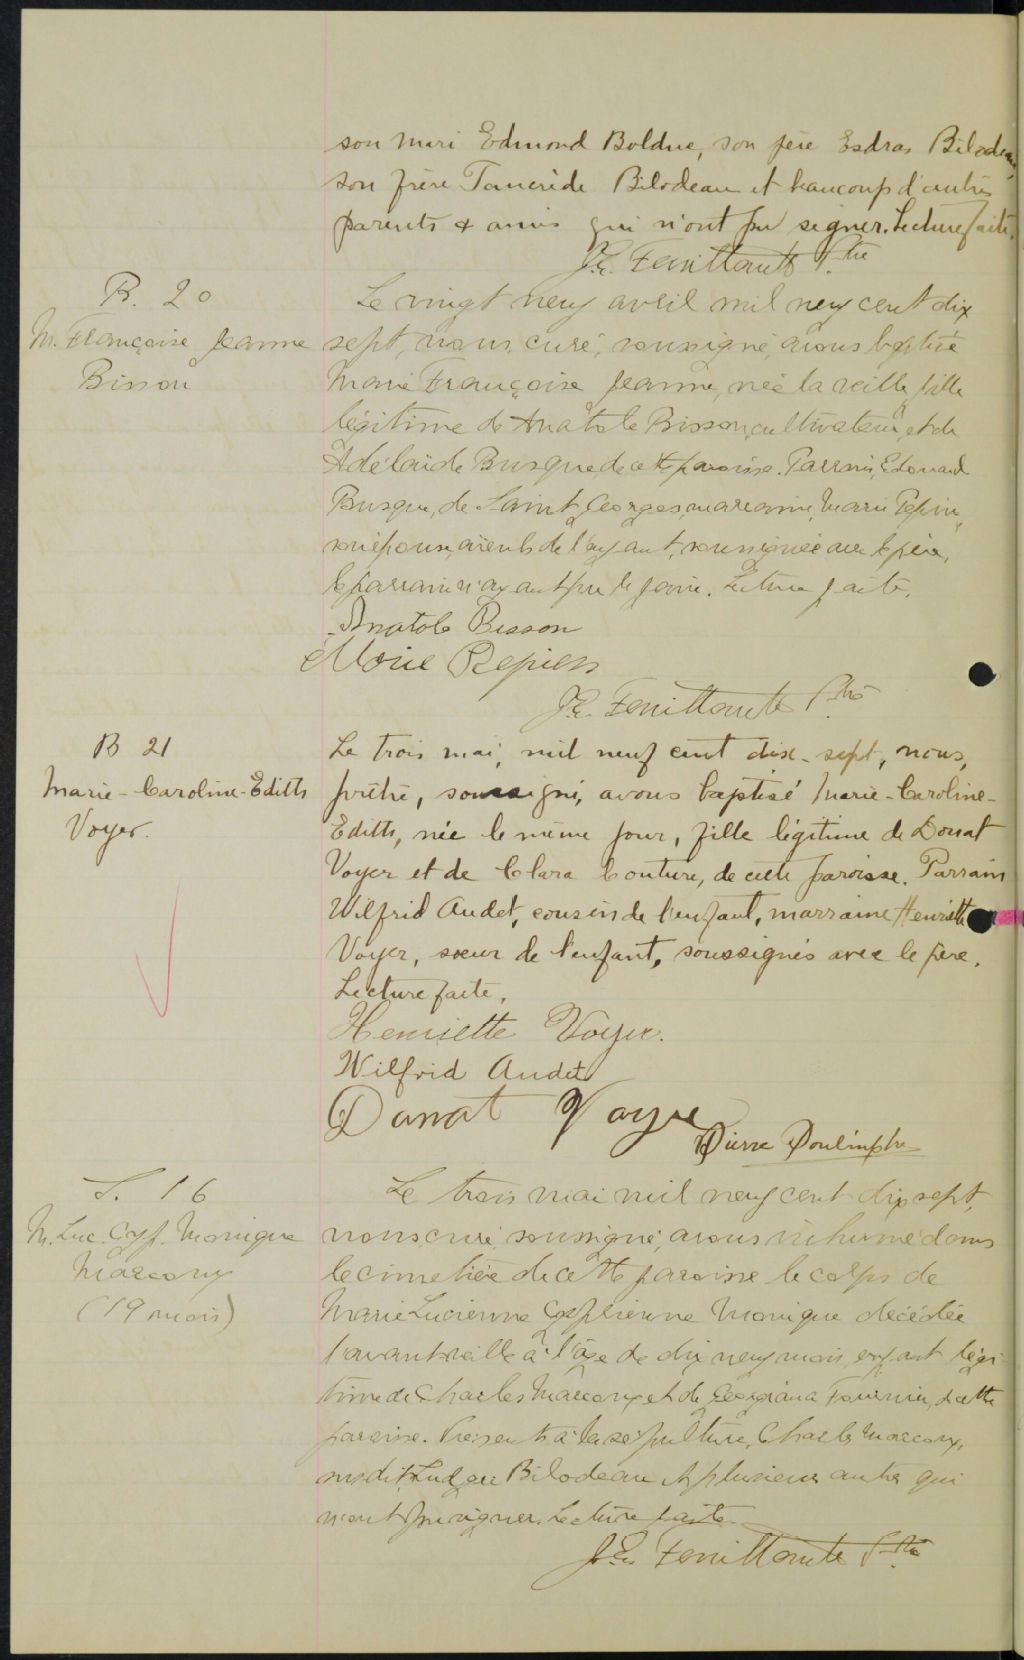 son mari Edmond Bolduc, son père Esdras Bilodeau,
son frère Tancrède Bilodeau et beaucoup d'autres
parents & amis qui n'ont pu signer. Lecture faite.
J.E. Feuiltault Ptre
B. 20
M. Françoise Jeanne
Bisson
Le vingt neuf avril mil neuf cent dix
sept, nous, curé, soussigné, avons baptisé
Marie Françoise Jeanne, née la veille, fille
légitime de Anatole Bisson, cultivateur, et de
Adélaïde Busque de cette paroisse. Parrain, Edouard
Busque, de Saint Georges, marraine, Marie Pepin,
son épouse, aïeuls de l'enfant, soussignée avec le père,
le parrain n'ayant pu le faire. Lecture faite.
Anatole Bisson
Marie Pepien
J.E. Feuiltault Ptre
B 21
Marie-Caroline-Edith
Voyer.
Le trois mai, mil neuf cent dix-sept, nous,
prêtre, soussigné, avons baptisé Marie-Caroline-
Edith, née le même jour, fille légitime de Donat
Voyer et de Clara Couture, de cette paroisse. Parrain
Wilfrid Audet, cousin de l'enfant, marraine Henriette
Voyer, sœur de l'enfant, soussignés avec le père.
Lecture faite.
Henriette Voyer.
Wilfrid Audet
Donat Voyer
Pierre Ptre
S. 16
M. Luc. Cyp. Monique
Marcoux
(19 mois)
Le trois mai mil neuf cent dix sept,
nous, curé, soussigné, avons inhumé dans
le cimetière de cette paroisse le corps de
Marie Lucienne Cyprienne Monique décédée
l'avant veille à l'âge de dix neuf mois, enfant légi-
time de Charles Marcoux et de Georgiana Fournier, de cette
paroisse. Présents à la sépulture, Charles Marcoux,
susdit, Ludger Bilodeau et plusieurs autres qui
n'ont pu signer. Lecture faite.
J.E. Feuiltault Ptre